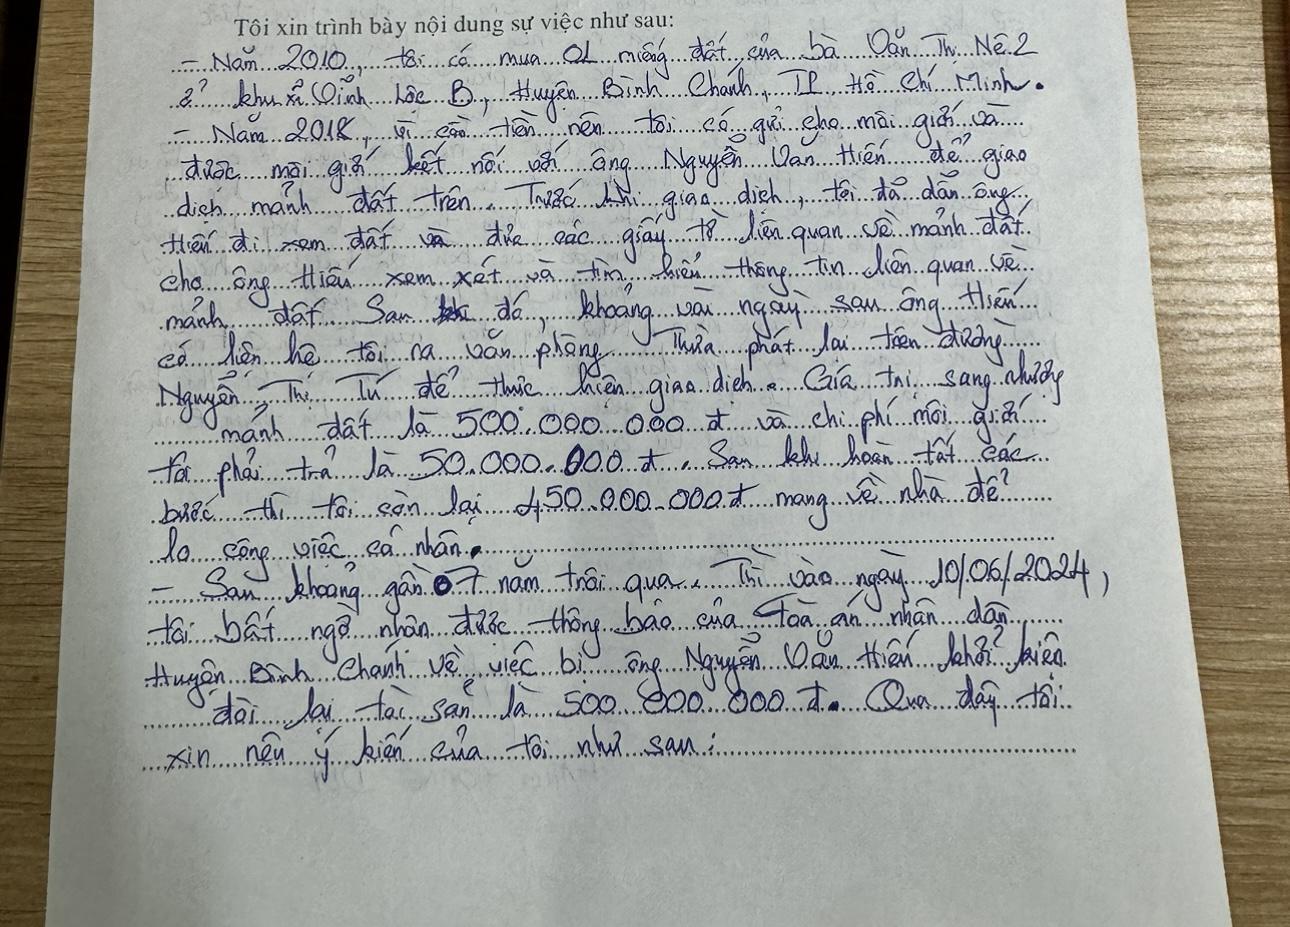 Tôi xin trình bày nội dung sự việc như sau:
- Năm 2010, tôi có mua 01 miếng đất của bà Văn Thị Nê.2
ở khu xã Vĩnh Lộc B, Huyện Bình Chánh, TP Hồ Chí Minh.
- Năm 2018, vì cần tiền nên tôi có gửi cho môi giới và
được môi giới kết nối với ông Nguyễn Văn Hiến để giao
dịch mảnh đất trên. Trước khi giao dịch, tôi đã dẫn ông
Hiến đi xem đất và đưa các giấy tờ liên quan về mảnh đất
cho ông Hiến xem xét và tìm hiểu thông tin liên quan về
mảnh đất. Sau đó, khoảng vài ngày sau ông Hiến
có liên hệ tôi ra văn phòng Thừa phát lại trên đường
Nguyễn Thị Tú để thực hiện giao dịch. Giá trị sang nhượng
mảnh đất là 500.000.000 đ và chi phí môi giới
tôi phải trả là 50.000.000 đ. Sau khi hoàn tất các
bước thì tôi còn lại 450.000.000đ mang về nhà để
lo công việc cá nhân.
- Sau khoảng gần 07 năm trôi qua. Thì vào ngày 10/06/2024,
tôi bất ngờ nhận được thông báo của Tòa án nhân dân
Huyện Bình Chánh về việc bị ông Nguyễn Văn Hiến khởi kiện
đòi lại tài sản là 500.000.000 đ. Qua đây tôi
xin nêu ý kiến của tôi như sau: